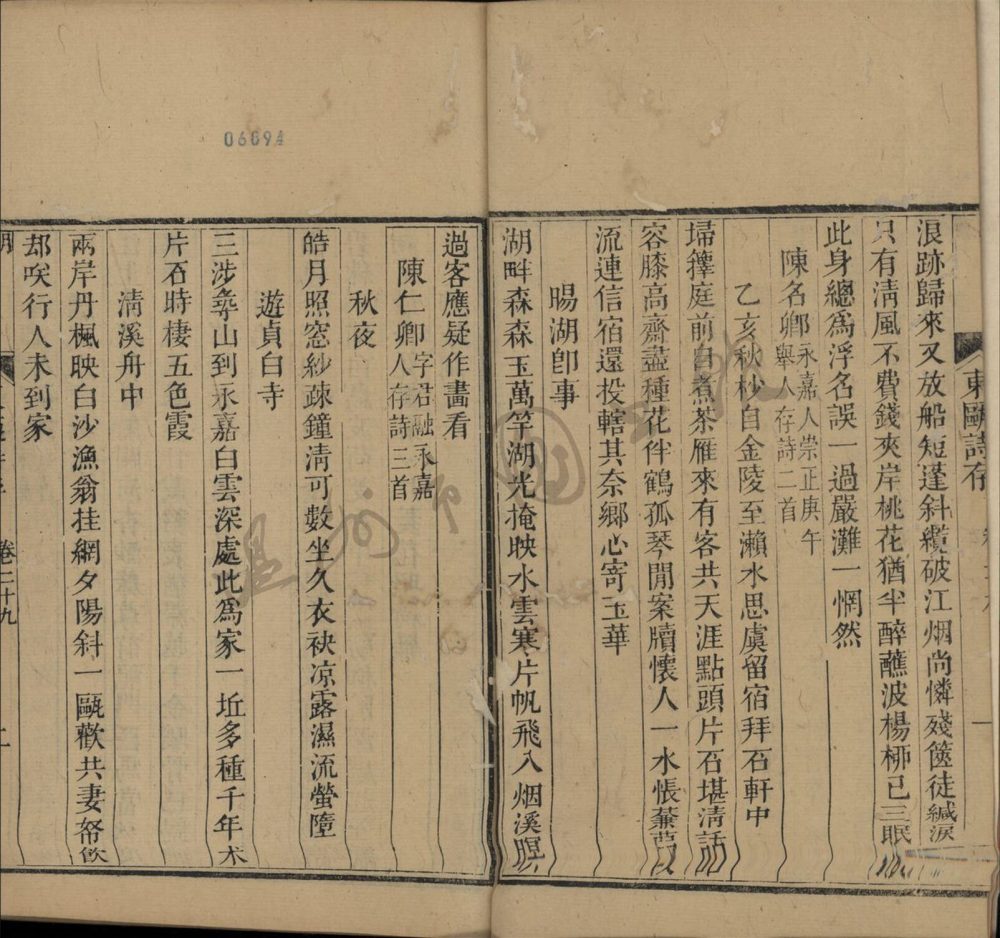 東甌詩存
浪跡歸來又放船短蓬斜纜破江烟尚憐殘篋徒緘淚
只有淸風不費錢夾岸桃花猶半醉蘸波楊柳已三眠
此身總爲浮名誤一過嚴灘一惘然
陳名卿永嘉人崇正庚午舉人存詩二首
乙亥秋杪自金陵至瀨水思虞留宿拜石軒中
埽籜庭前自煮茶雁來有客共天涯點頭片石堪淸話
容膝高齋盡種花伴鶴孤琴閒案牘懷人一水悵蒹葭
流連信宿還投轄其奈鄕心寄玉華
暘湖卽事
湖畔森森玉萬竿湖光掩映水雲寒片帆飛入烟溪暝
過客應疑作畵看
陳仁卿字君融永嘉人存詩三首
秋夜
皓月照窓紗疎鐘淸可數坐久衣袂凉露濕流螢墮
遊貞白寺
三涉彝山到永嘉白雲深處此爲家一坵多種千年术
片石時棲五色霞
淸溪舟中
兩岸丹楓映白沙漁翁挂網夕陽斜一甌歡共妻孥飮
却咲行人未到家
卷二十九
二
06894